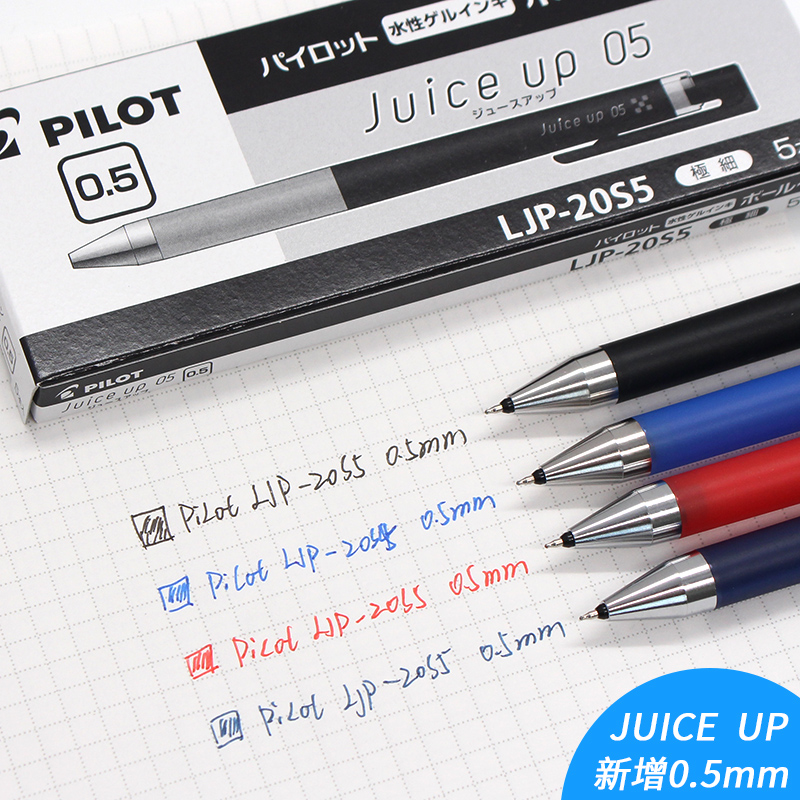 パイロット 水性ゲルインキ
Juice up 05
ジュースアップ
PILOT
0.5
Juice up 05
LJP-20S5 極細
パイロット 水性ゲルインキ ボール
LJP-20S5 極細
PILOT
Juice up 05 0.5
ジュースアップ
0.5
Pilot LJP-20S5 0.5mm
Pilot LJP-20S5 0.5mm
Pilot LJP-20S5 0.5mm
Pilot LJP-20S5 0.5mm
JUICE UP
新增0.5mm